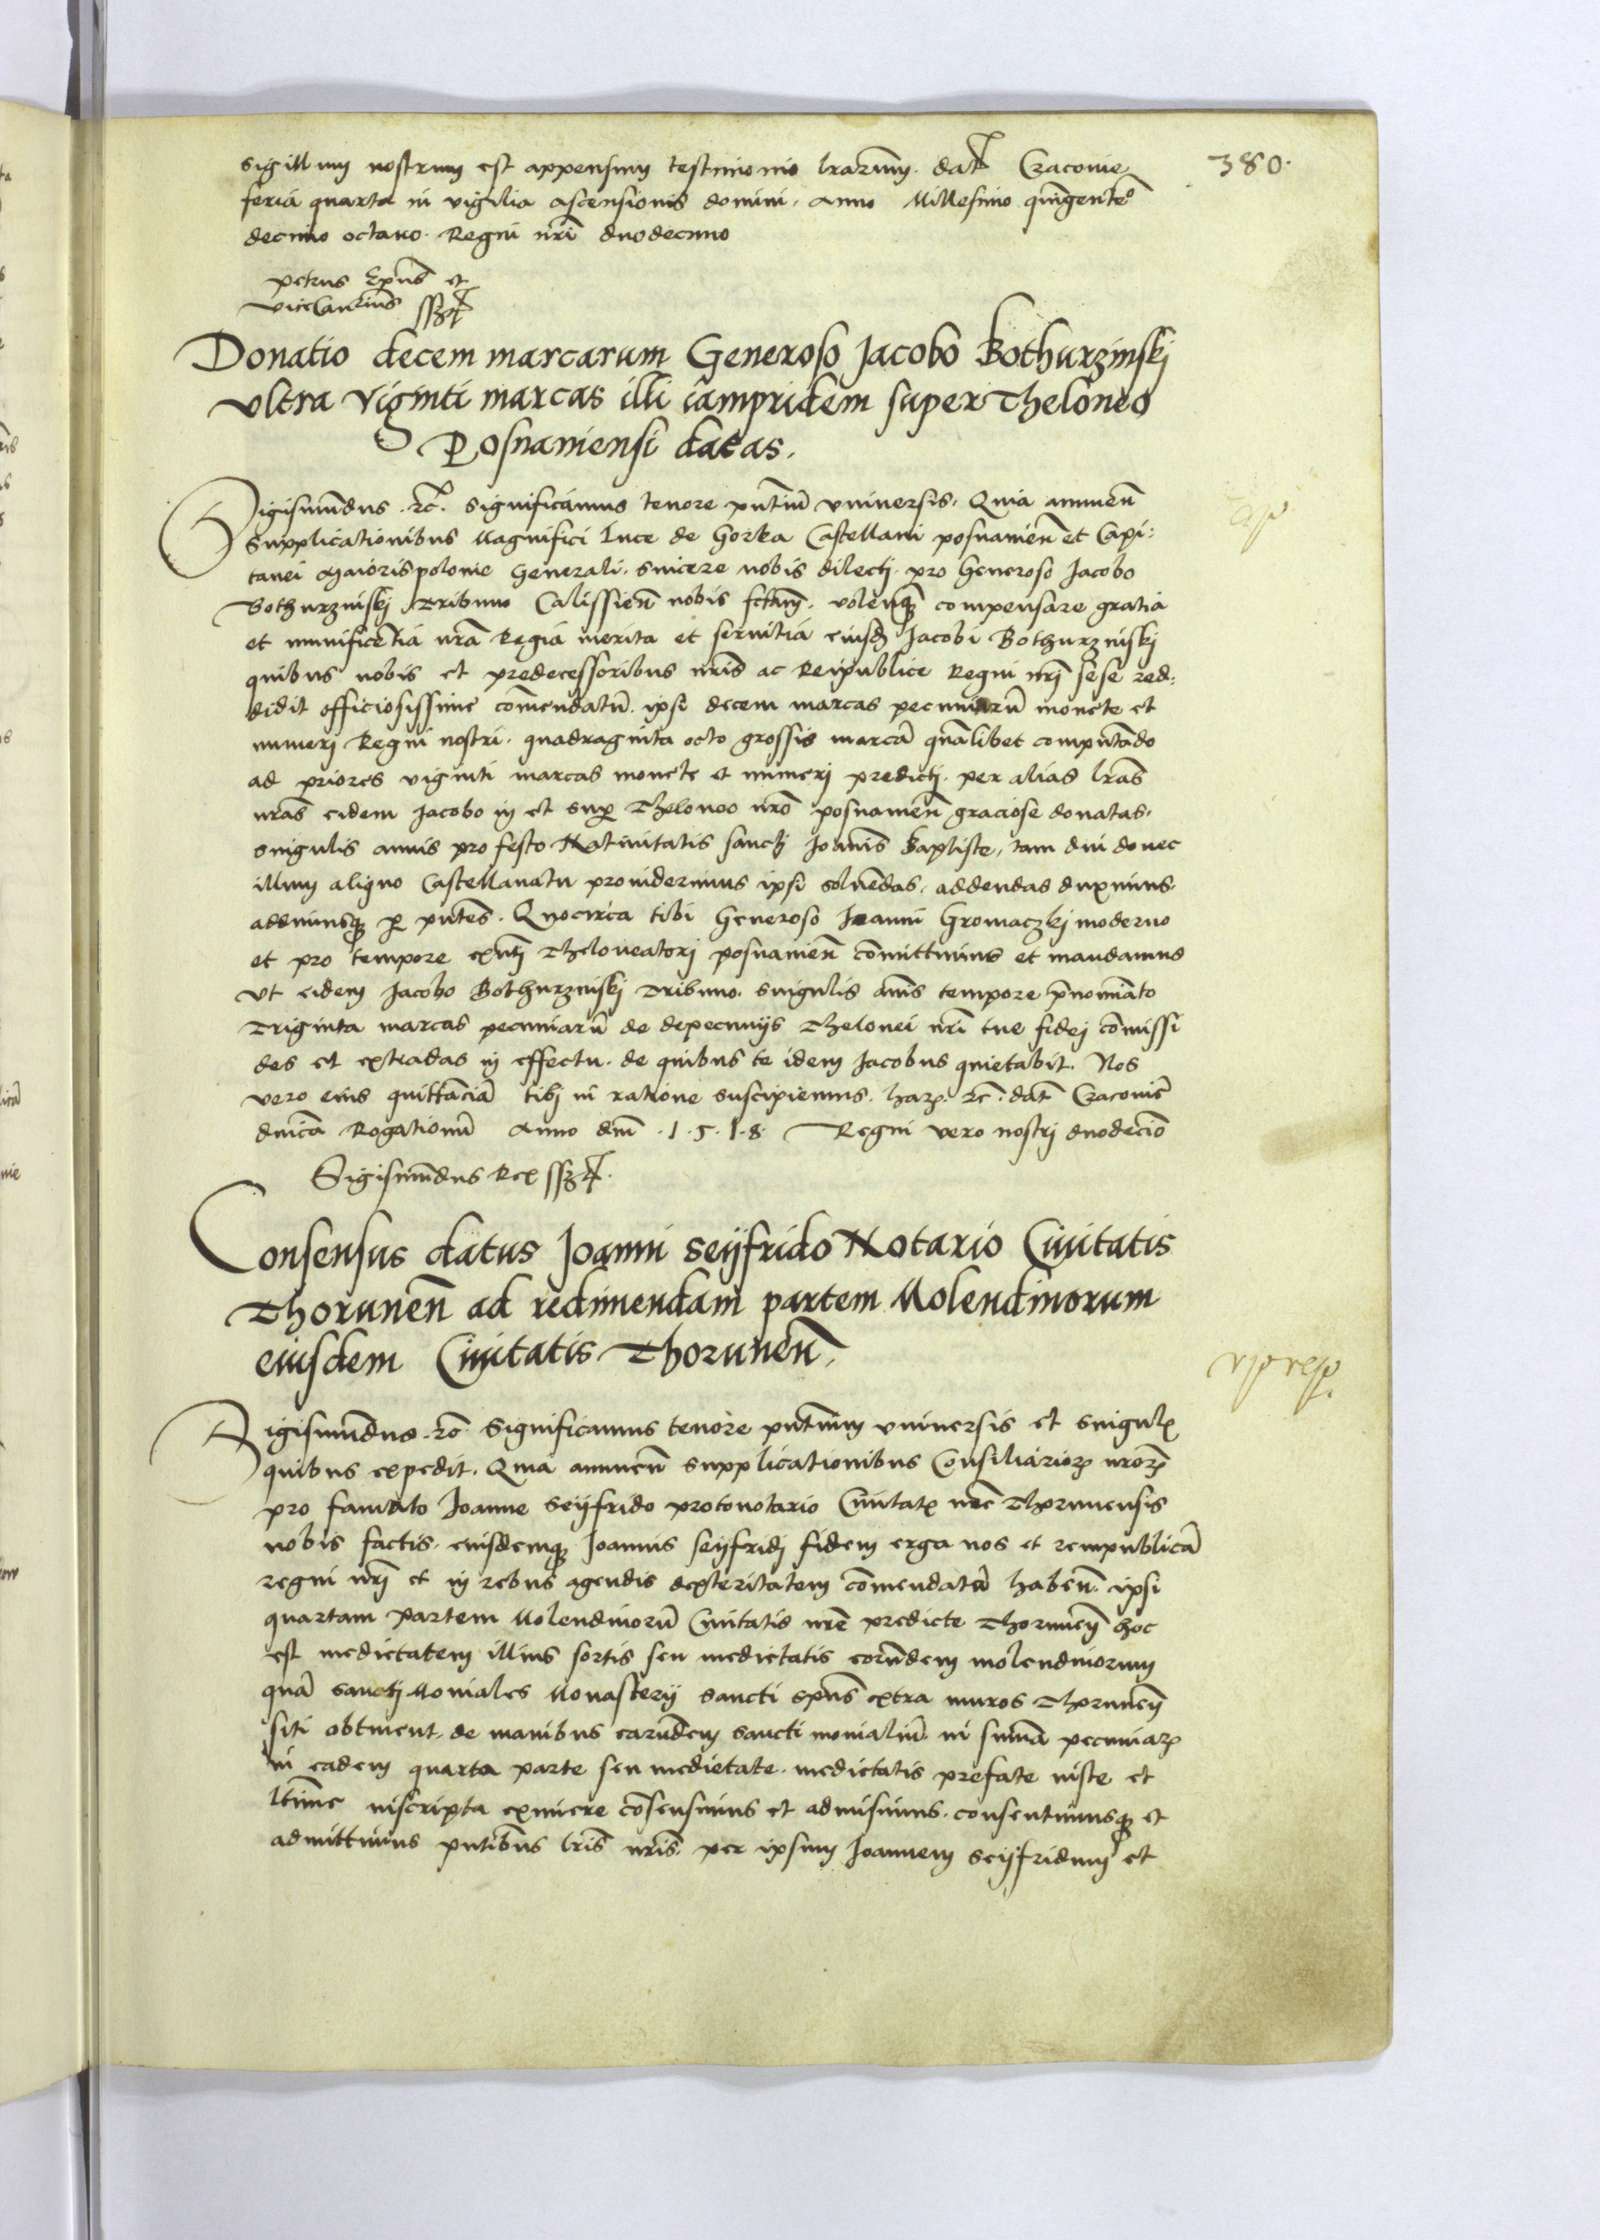 380.
sigillum nostrum est appensum testimonio lrarum. dat Cracovie
feria quarta in vigilia ascensionis domini. Anno Millesimo quingenteo
decimo octavo. Regni nri duodecimo
petrus Epus et
viceCancrius sszt
Donatio decem marcarum Generoso Jacobo Bothurzinskj
ultra viginti marcas illi iampridem super Theloneo
Posnaniensi datas.
Sigismundus. rc. Significamus tenore pntium universis. Quia annuen
supplicationibus Magnifici Luce de Gorka Castellani posnanien et Capi:
tanei Maiorispolonie Generali. sincere nobis dilectj. pro Generoso Jacobo
Bothurzinskj Tribuno Calissien nobis fctum. volenq compensare gratia
et munificentia nra Regia merita et servitia eiusd Jacobi Bothurzinskj
quibus nobis et predecessoribus nris ac Reipublice Regni nrj sese red:
didit officiosissime comendatu. ipsi decem marcas pecuniaru monete et
numerj Regni nostri. quadraginta octo grossis marca qualibet computado
ad priores viginti marcas monete et numerj predictj. per alias lras
nras eidem Jacobo in et sup Theloneo nro posnanien graciose donatas.
singulis annis pro festo Nativitatis sanctj Joannis Baptiste, tam diu donec
illum aliquo Castellanatu providerimus ipsi solvendas. addendas duximus.
addimusq p pntes. Quocirca tibi Generoso Joanni Gromaczkj moderno
et pro tempore exntj Theloneatorj posnanien comittimus et mandamus
ut eidem Jacobo Bothurzinskj Tribuno. singulis anis tempore pnominato
Triginta marcas pecuniaru de depecuniis Thelonei nri tue fidej comissi
des et extradas in effectu. de quibus te idem Jacobus quietabit. Nos
vero eius quittancia tibj in ratione suscipiemus. har. rc. dat Cracovie
dnica Rogationu Anno dni .1.5.1.8. Regni vero nostrj duodecio
Sigismundus Rex sszt.
Consensus datus Joanni Seyfrido Notario Civitatis
Thorunen ad redimendam partem Molendinorum
eiusdem Civitatis Thorunen.
Sigismundus. rc Significamus tenore pntium universis et singul
quibus expedit. Quia annuen supplicationibus Consiliarior nror
pro famato Joanne Seyfrido protonotario Civitat nre Thorunensis
nobis factis. eiusdemq Joannis seyfridj fidem erga nos et rempublica
regni nrj et in rebus agendis dexteritatem comendata haben. ipsi
quartam partem Molendinoru Civitatis nre predicte Thorunen hoc
est medietatem illius sortis seu medietatis eorundem molendinorum
qua sanctj Moniales Monasterij sancti spus extra muros Thorunen
siti obtinent. de manibus earundem sancti monialiu. in suma pecuniar
in eadem quarta parte seu medietate. medietatis prefate iuste et
ltime inscripta eximere consensimus et admisimus. consentimusq et
admittimus pntibus lris nris. per ipsum Joannem Seyfridum et